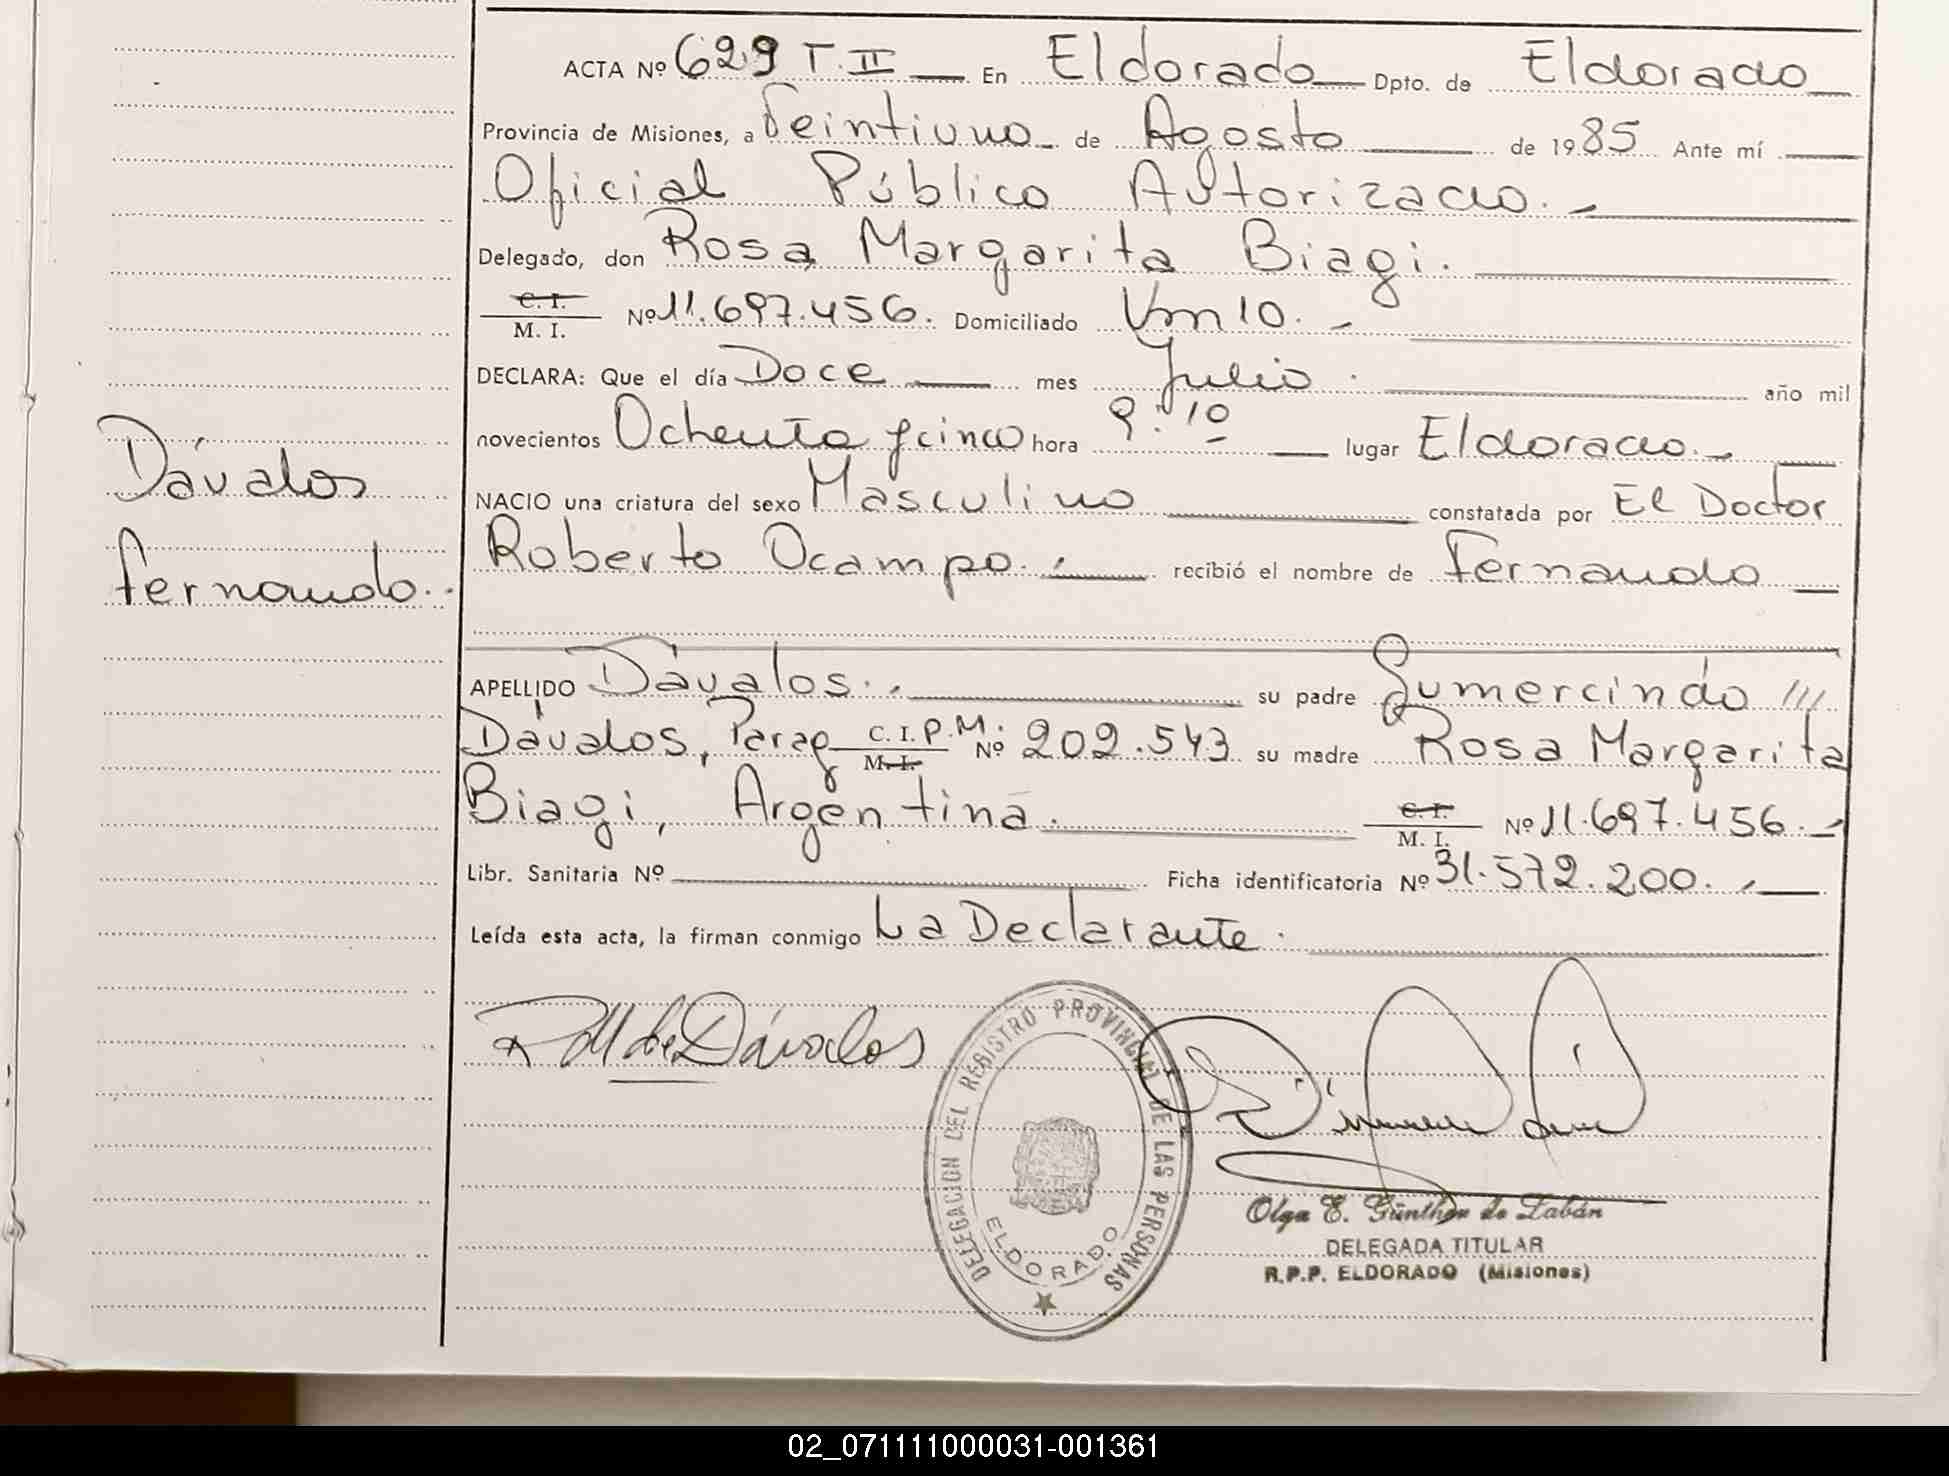 ACTA Nº 629 T. II En Eldorado Dpto. de Eldorado
Provincia de Misiones, a Veintiuno de Agosto de 1985 Ante mí
Oficial Público Autorizado.
Delegado, don Rosa Margarita Biagi.
C. I. / M. I. Nº 11.697.456. Domiciliado Km 10.
DECLARA: Que el día Doce mes Julio. año mil
novecientos Ochenta y cinco hora 9:10 lugar Eldorado.
Dávalos
NACIO una criatura del sexo Masculino constatada por El Doctor
Fernando.
Roberto Ocampo. recibió el nombre de Fernando
APELLIDO Dávalos. su padre Gumercindo ///
Dávalos, Parag C. I. P.M. / M. I. Nº 202.543 su madre Rosa Margarita
Biagi, Argentina. C. I. / M. I. Nº 11.697.456.
Libr. Sanitaria Nº Ficha identificatoria Nº 31.572.200.
Leída esta acta, la firman conmigo La Declarante.
de Dávalos
DELEGACION DEL REGISTRO PROVINCIAL DE LAS PERSONAS
ELDORADO
Olga E. Günther de Labán
DELEGADA TITULAR
R.P.P. ELDORADO (Misiones)
02_071111000031-001361